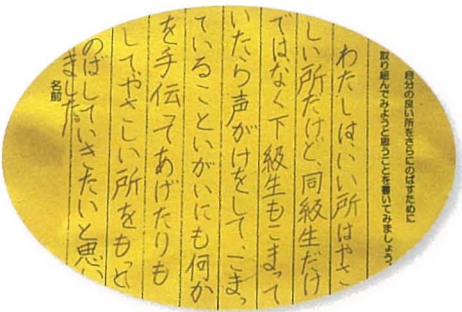 自分の良い所をさらにのばすために
取り組んでみようと思うことを書いてみましょう。
わたしは、いい所はやさ
しい所だけど、同級生だけ
ではなく下級生もこまって
いたら声がけをして、こまっ
ていることいがいにも何か
を手伝ってあげたりも
してやさしい所をもっと
のばしていきたいと思い
ました。
名前